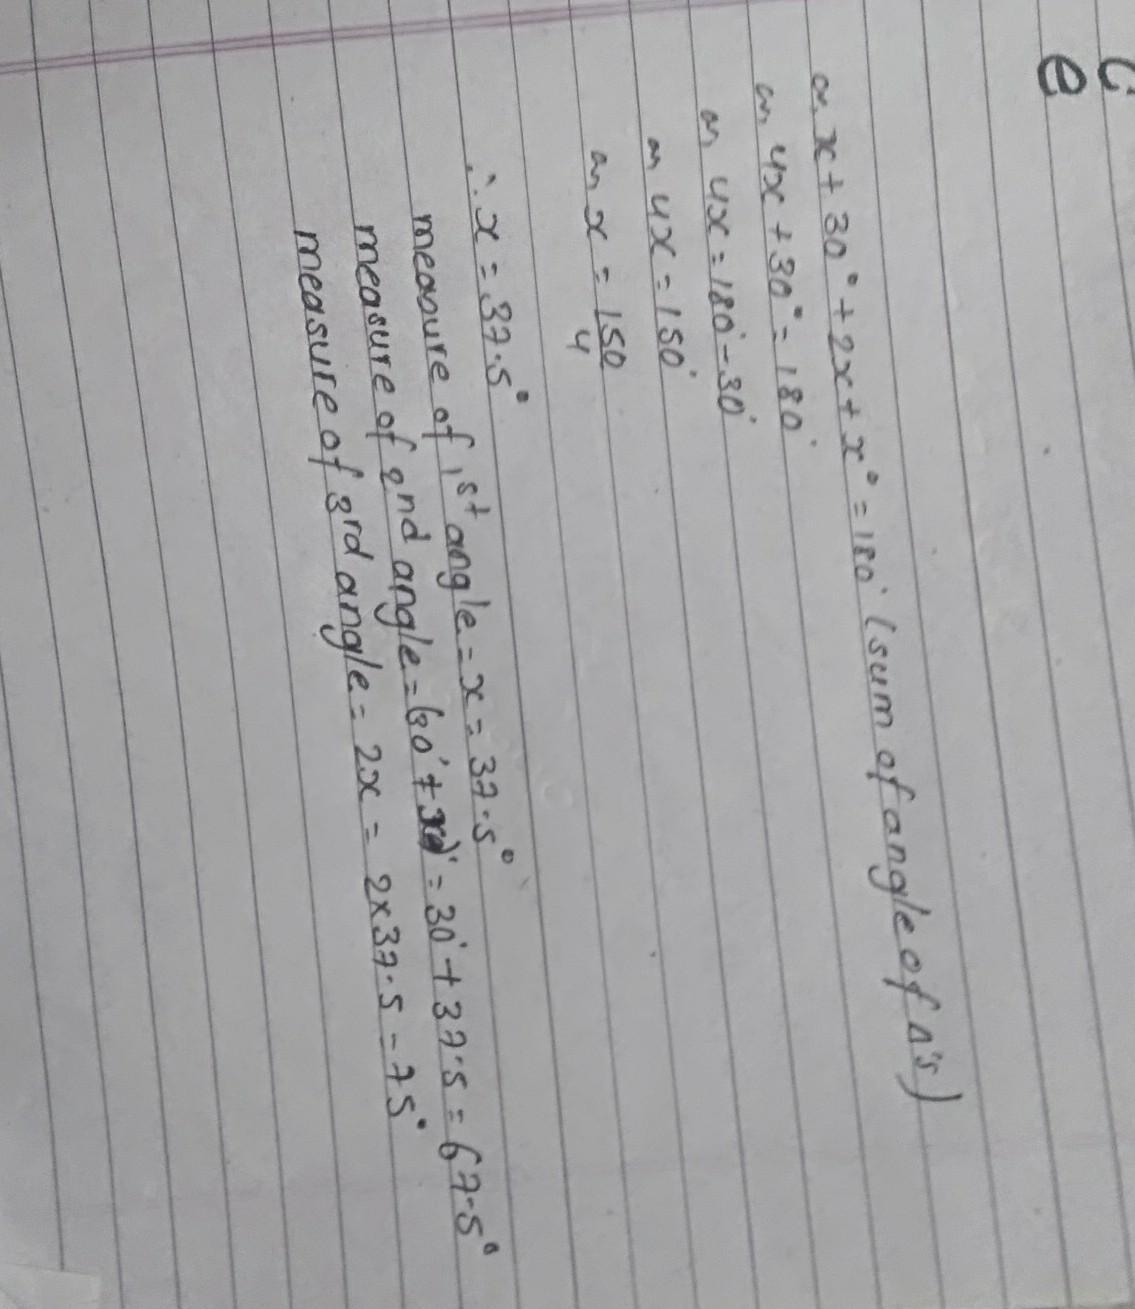 e
or, x + 30° + 2x + x° = 180° (sum of angle of Δ's)
or, 4x + 30° = 180°
or, 4x = 180° - 30°
or, 4x = 150°
or, x = 150/4
∴ x = 37.5°
measure of 1st angle = x = 37.5°
measure of 2nd angle = (30° + x)° = 30° + 37.5 = 67.5°
measure of 3rd angle = 2x = 2x37.5 = 75°